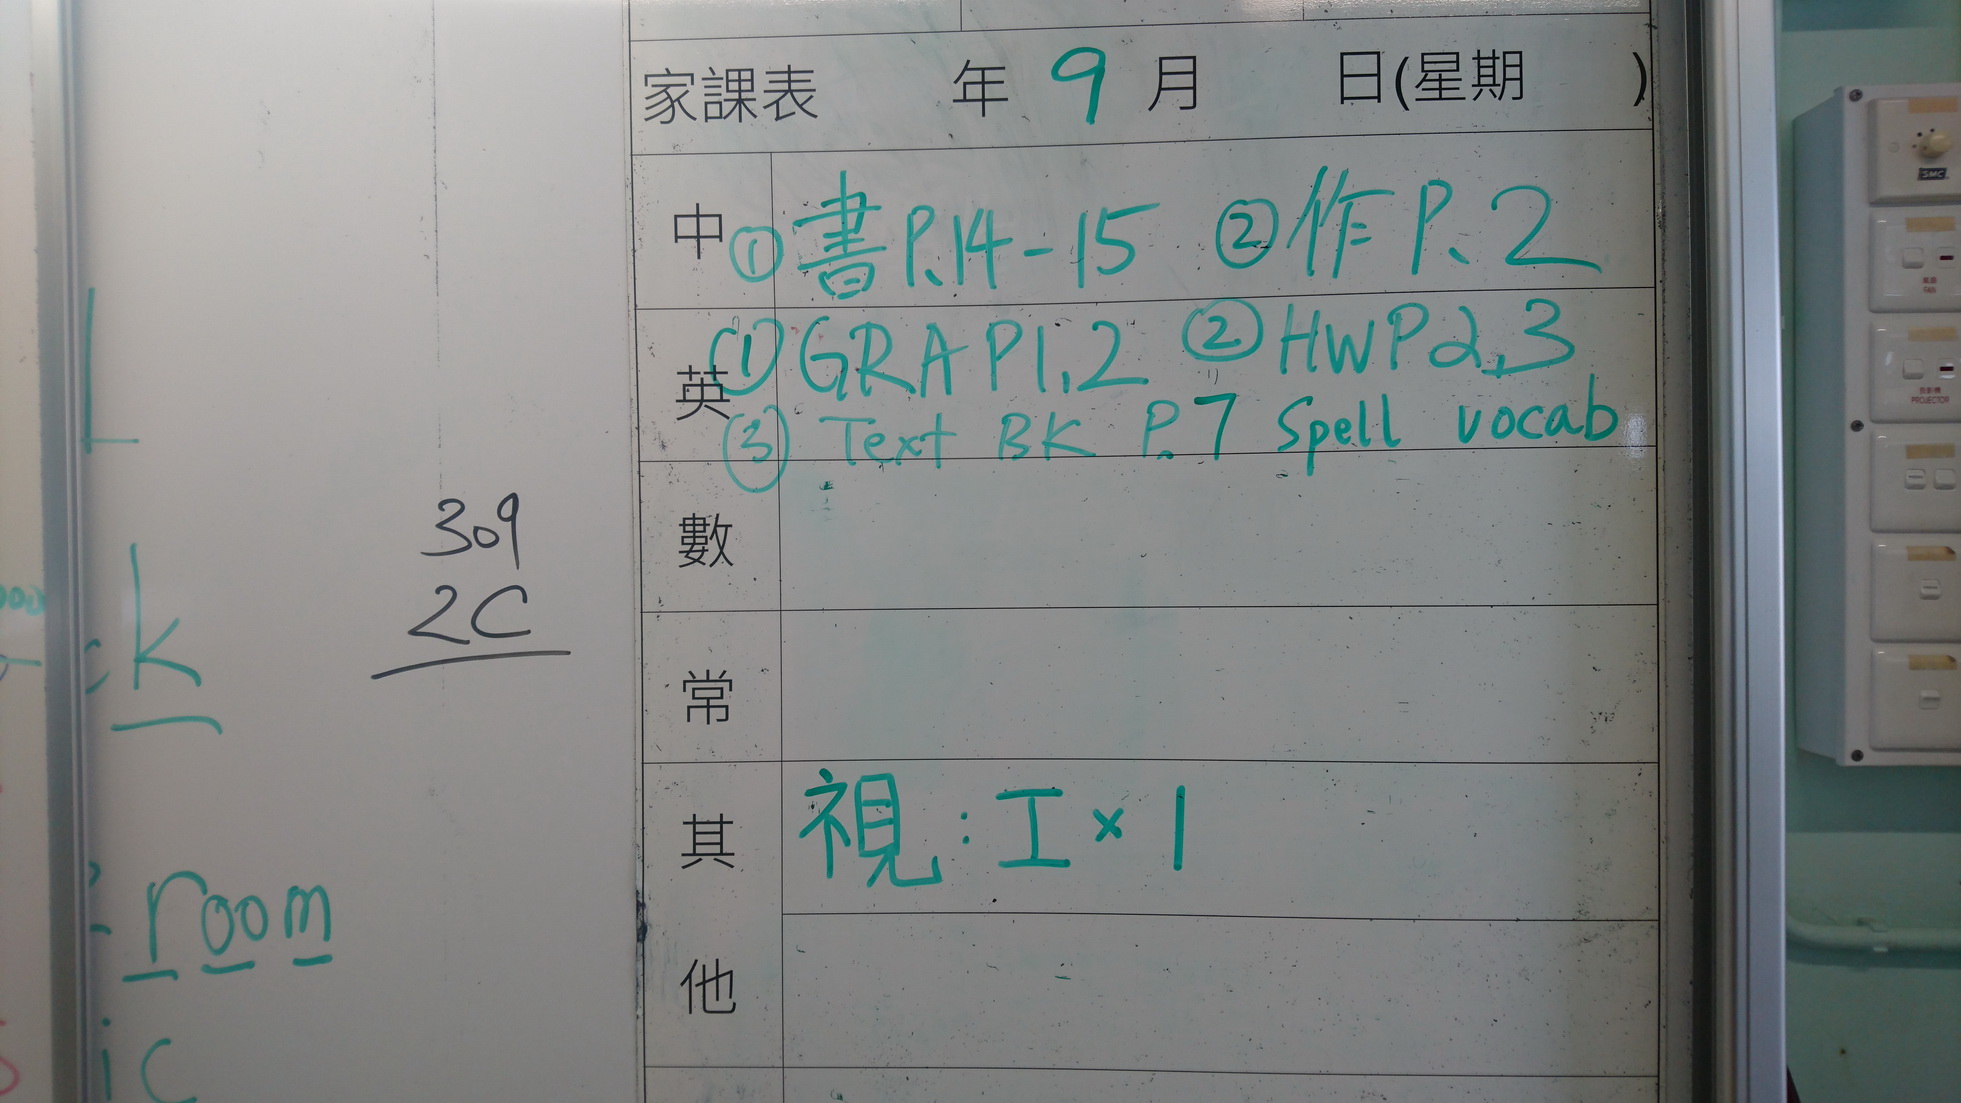 家課表 年 9 月 日(星期 )
中 ① 書 P.14-15 ② 作 P.2
英 ① GRA P1,2 ② HW P2,3
③ Text BK P.7 Spell vocab
數
常
其 視:工×1
他
309
2C
k
room
ic
SMC
FAN
PROJECTOR